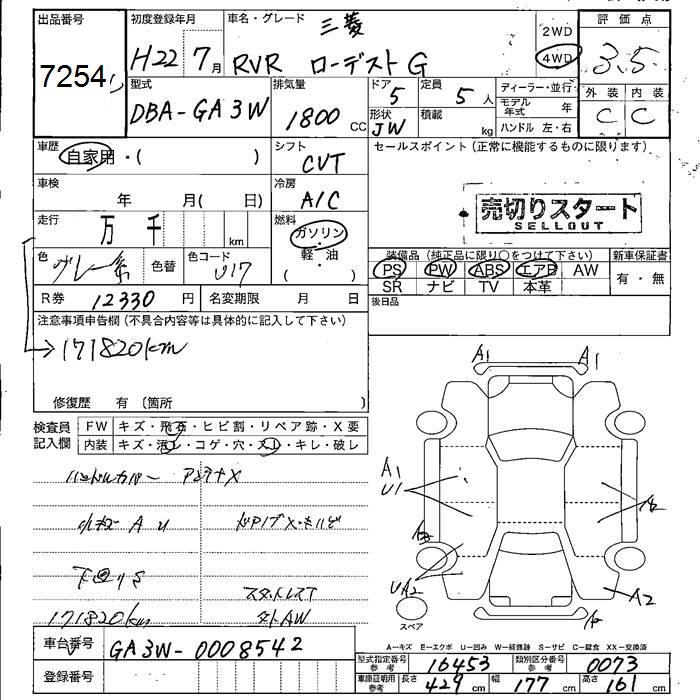 出品番号
7254
初度登録年月
H22 7月
車名・グレード
三菱
RVR ローデスト G
2WD
4WD
評価点
3.5
外装 内装
C C
型式
DBA-GA3W
排気量
1800 CC
ドア
5
定員
5人
形状
JW
積載
kg
ディーラー・並行
モデル年式 年
ハンドル 左・右
車歴
自家用・( )
シフト
CVT
セールスポイント(正常に機能するものに限ります)
車検
年 月( 日)
冷房
A/C
売切りスタート
SELLOUT
走行
万 千 km
燃料
ガソリン
軽・油
色
グレー系
色替
色コード
U17
装備品(純正品に限り○をつけて下さい)
PS PW ABS エアB AW
SR ナビ TV 本革
新車保証書
有・無
R券 12330円
名変期限 月 日
後日品
注意事項申告欄(不具合内容等は具体的に記入して下さい)
171820km
修復歴 有(箇所 )
検査員記入欄
FW キズ・飛石・ヒビ割・リペア跡・X要
内装 キズ・汚レ・コゲ・穴・スレ・キレ・破レ
ハンドルカバー アンテナX
小キズ A U
下回りS
スタットレスT
171820km
タイAW
A1 A1
A1
U1
UA2
A2
スペア
A-キズ E-エクボ U-凹み W-補修跡 S-サビ C-腐食 XX-交換済
車台番号
GA3W-0008542
登録番号
型式指定番号参考 16453
類別区分番号参考 0073
車庫証明用参考 長さ 429cm 幅 177cm 高さ 161cm